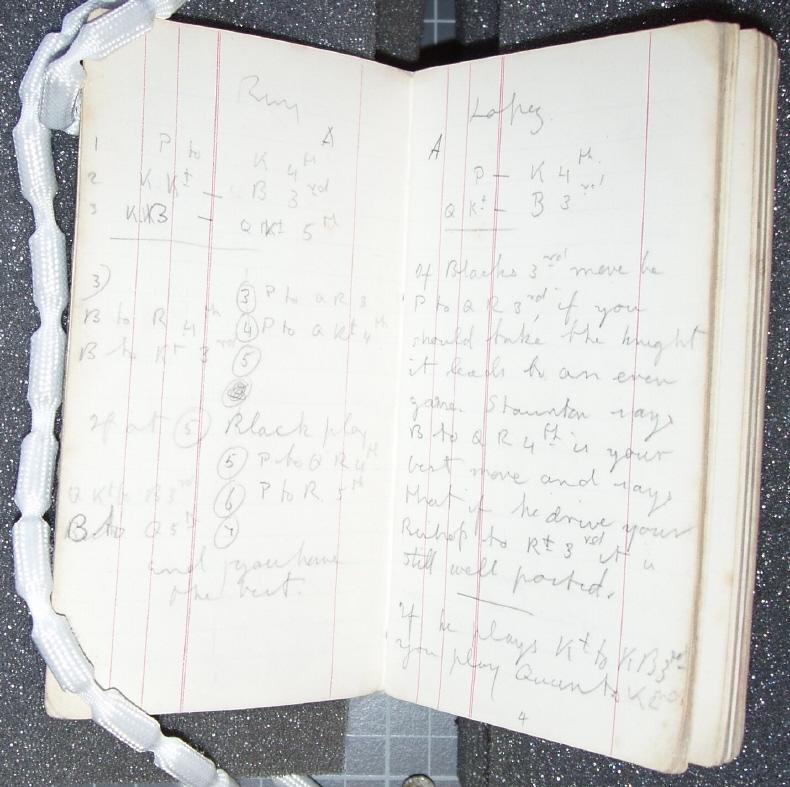 Ruy
A
1 P to K 4th
2 K Kt - B 3rd
3 KKB - QKt 5th
3)
③ P to Q R 3
B to R 4th ④ P to Q Kt 4th
B to Kt 3rd ⑤
If at ⑤ Black play
⑤ P to Q R 4th
Q Kt to B 3rd ⑥ P to R 5th
B to Q 5th ⑦
and you have
the best.
Lopez
A
P - K 4th
Q Kt - B 3rd
If Blacks 3rd move be
P to Q R 3rd, if you
should take the knight
it leads to an even
game. Staunton says
B to Q R 4th is your
best move and says
that if he drive your
Bishop to Kt 3rd it is
still well posted.
If he plays Kt to KB3rd
you play Queen to K2
4